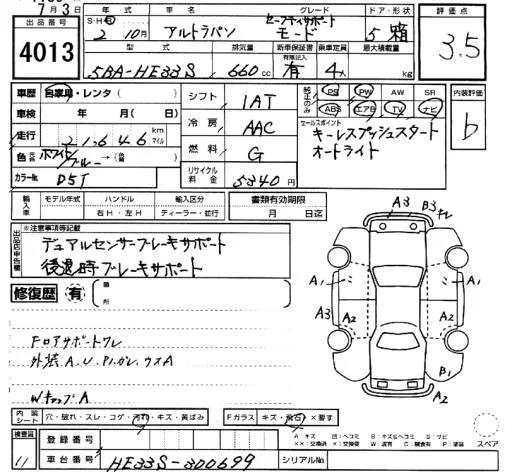 7月3日
出品番号 4013
年・式 車名 グレード ドア・形状 評価点
S・H 2 10月 アルトラパン セーフティサポート モード 5 箱 3.5
型式 排気量 新車保証書 乗車定員 最大積載量
有限記入
5BA-HE33S 660cc 有 4人 kg
車歴 自家用・レンタ( )
車検 年 月( 日)
走行 21,646 km マイル
色 ホワイト/ブルー→(色)
カラーNo. D5T
シフト 1AT
冷房 AAC
燃料 G
リサイクル料金 5340円
純正のみ PS PW AW SR
ABS エアB TV ナビ
内装評価 b
セールスポイント
キーレスプッシュスタート
オートライト
輸入車 モデル年式 ハンドル 輸入区分 書類有効期限
右H・左H ディーラー・並行 月 日迄
出品店申告欄 ※注意事項等記載
デュアルセンサーブレーキサポート
後退時ブレーキサポート
修復歴 有 箇所
Fロアサポートワレ
外装A.U.P.ハガレ.ウスA
WキャップA
A3 B3 ワレ
A1 A1
A3 A2 A2
B1
A2
内装シート 穴・破れ・スレ・コゲ・汚れ・キズ・黄ばみ Fガラス キズ・飛石・×要す
検査員 11
登録番号
車台番号 HE33S-300699 シリアルNo
A:キズ U:ヘコミ B:キズ&ヘコミ S:サビ
××:交換済 ×:交換要 W:波有 C:腐食有 P:塗装
スペア